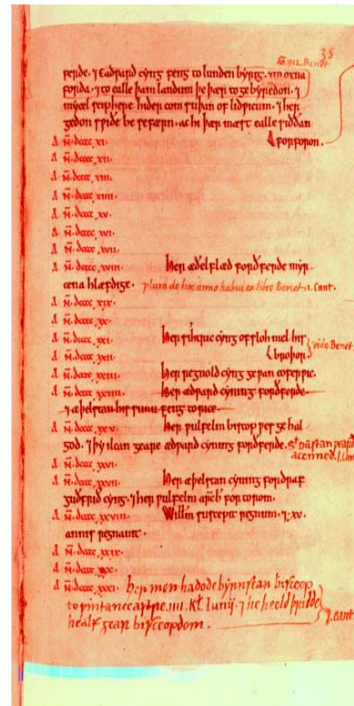 36
Aº. 912. Benet
ferde. ⁊ Eadƿard cyng feng to lunden byrig. ⁊ to oxna
forda. ⁊ to ealle þam landum þe þær to ge byredon. ⁊
mycel sciphere hider com suþan of lidƿicum. ⁊ her
gedon sƿiðe be sæfærn. ac hi þær mæst ealle siððan
forforon.
A N̄. dcccc. xi.
A N̄. dcccc. xii.
A N̄. dcccc. xiii.
A N̄. dcccc. xiiii.
A N̄. dcccc. xv.
A N̄. dcccc. xvi.
A N̄. dcccc. xvii.
A N̄. dcccc. xviii. Her æðelflæd forðferde myr
cena hlæfdige. plura de hoc anno habui ex libro Benet. 1. Cant.
A N̄. dcccc. xix.
A N̄. dcccc. xx.
A N̄. dcccc. xxi. Her sihtric cyng ofsloh niel his
A N̄. dcccc. xxii. broþor. vide Benet.
A N̄. dcccc. xxiii. Her regnold cyng geƿan eoferƿic.
A N̄. dcccc. xxiiii. Her ædƿard cyning forðferde
⁊ æþelstan his sunu feng to rice.
A N̄. dcccc. xxv. Her ƿulfelm biscop ƿes ge hal
god. ⁊ þy ilcan geare ædƿard cyning forðferde. St Dunstan ƿearð
acenned. 1. Can
A N̄. dcccc. xxvi.
A N̄. dcccc. xxvii. Her æþelstan cyning fordraf
guðfrid cyng. ⁊ her ƿulfelm arcb̄ for to rome.
A N̄. dcccc. xxviii. Willm̄ suscepit regnum. ⁊ .xv.
annis regnauit.
A N̄. dcccc. xxix.
A N̄. dcccc. xxx.
A N̄. dcccc. xxxi. Her men hadode byrnstan bisceop
to ƿintanceastre. iiii. kł. Iunij. ⁊ he heold þridde
healf gear bisceopdom. 1. cant